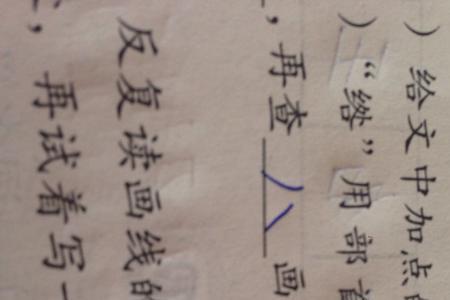 ）给文中加点
）“绺”用部首
，再查八画
反复读画线的
，再试着写